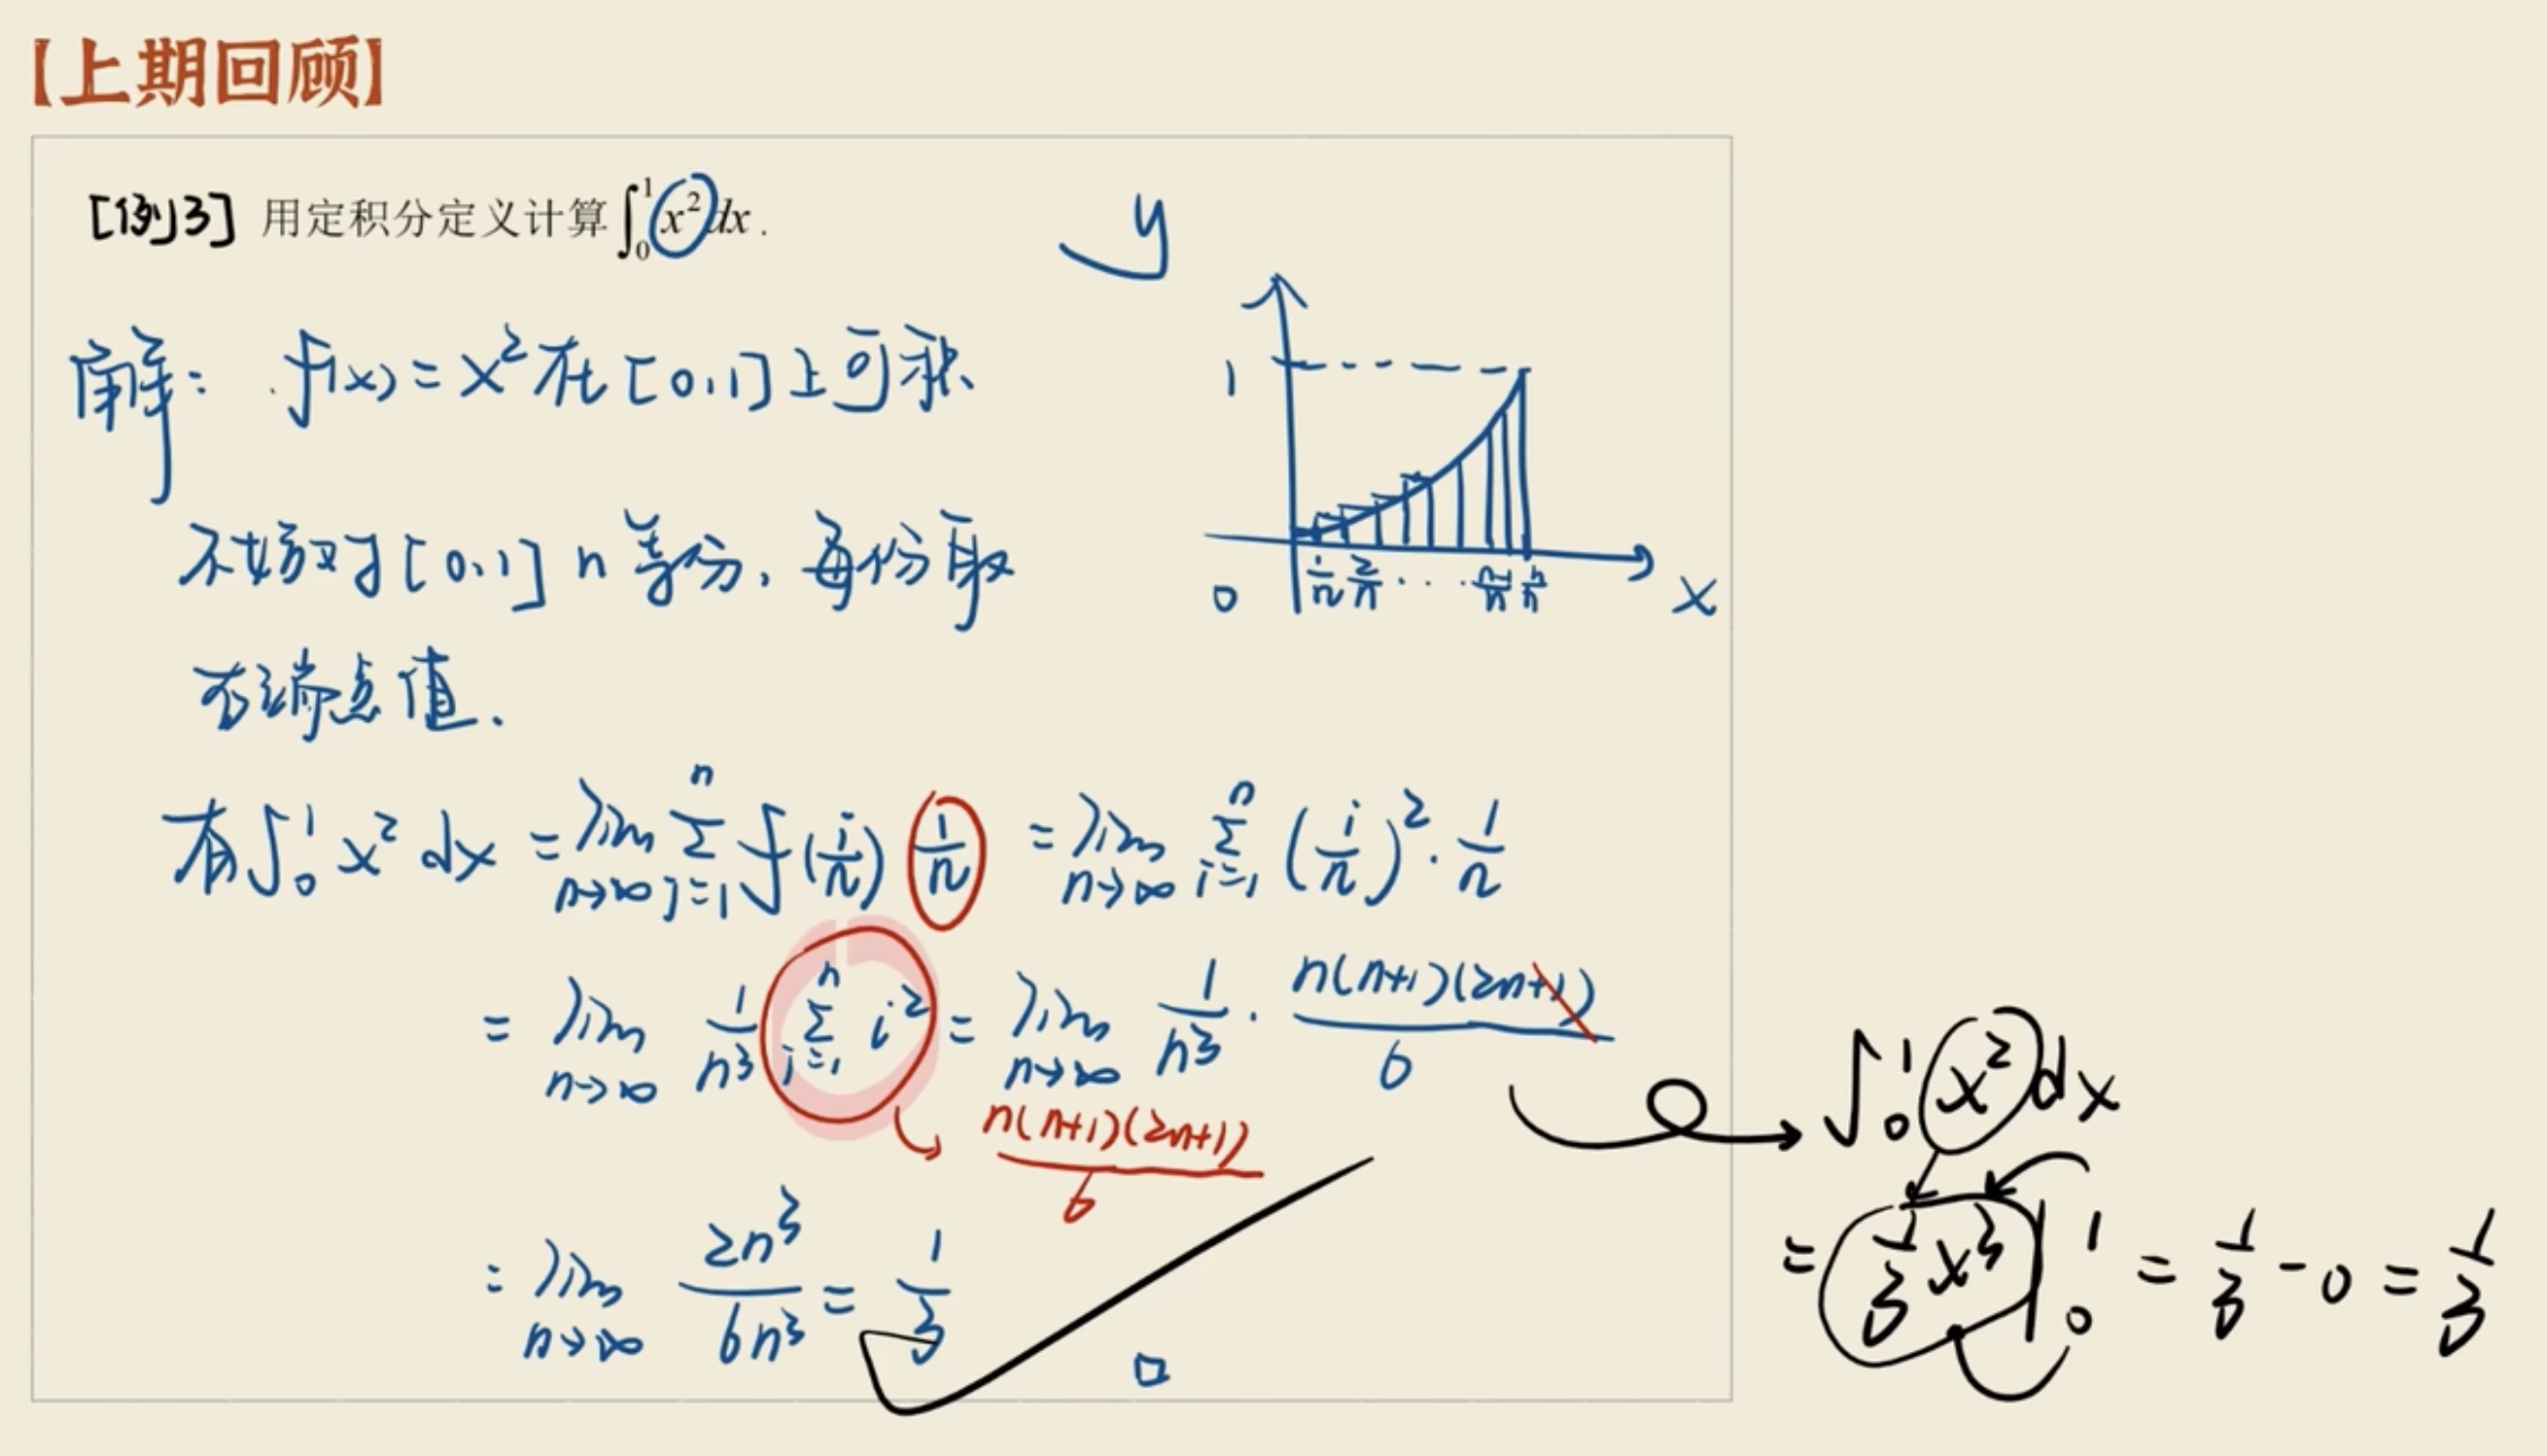 【上期回顾】
[例3] 用定积分定义计算∫₀¹x²dx.
解: f(x)=x²在[0,1]上可积
不妨对[0,1] n等份, 每份取
右端点值.
y
1
0 1/n 2/n ... (n-1)/n n/n x
有∫₀¹ x² dx = lim n→∞ Σ i=1 n f(i/n) 1/n = lim n→∞ Σ i=1 n (i/n)² · 1/n
= lim n→∞ 1/n³ Σ i=1 n i² = lim n→∞ 1/n³ · n(n+1)(2n+1)/6
n(n+1)(2n+1)/6
= lim n→∞ 2n³/6n³ = 1/3
∫₀¹ x² dx
= 1/3 x³ |₀¹ = 1/3 - 0 = 1/3